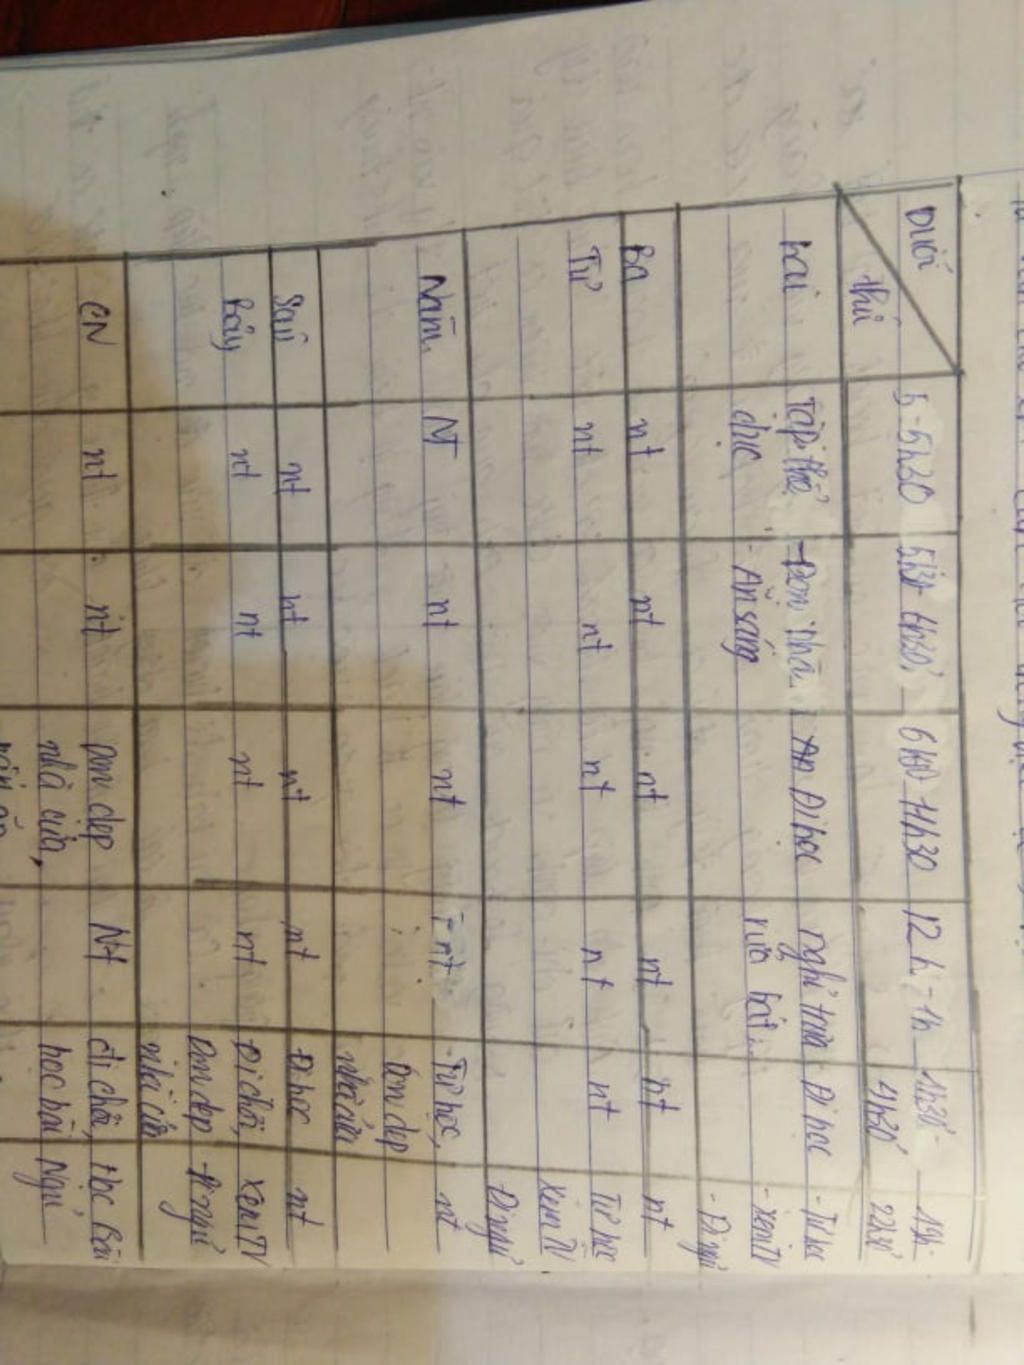 Buổi 5-5h30 5h30-6h30' 6h30-11h30 12h-1h 1h30'- 19h-
thứ 4h30' 22h30'
hai Tập thể -Dọn nhà. Đi học nghỉ trưa Đi học - Tự học
dục - Ăn sáng rửa bát. - xem TV
- Đi ngủ
Ba nt nt nt nt nt nt
Tư nt nt nt nt nt Tự học
xem TV
Đi ngủ
Năm. NT nt nt - nt - Tự học, nt
Dọn dẹp
nhà cửa
Sáu nt nt nt nt Đi học nt
Bảy nt nt nt nt Đi chơi, xem TV
Dọn dẹp đi ngủ
nhà cửa
CN nt nt Dọn dẹp Nt đi chơi, Học bài
nhà cửa, học bài Ngủ,